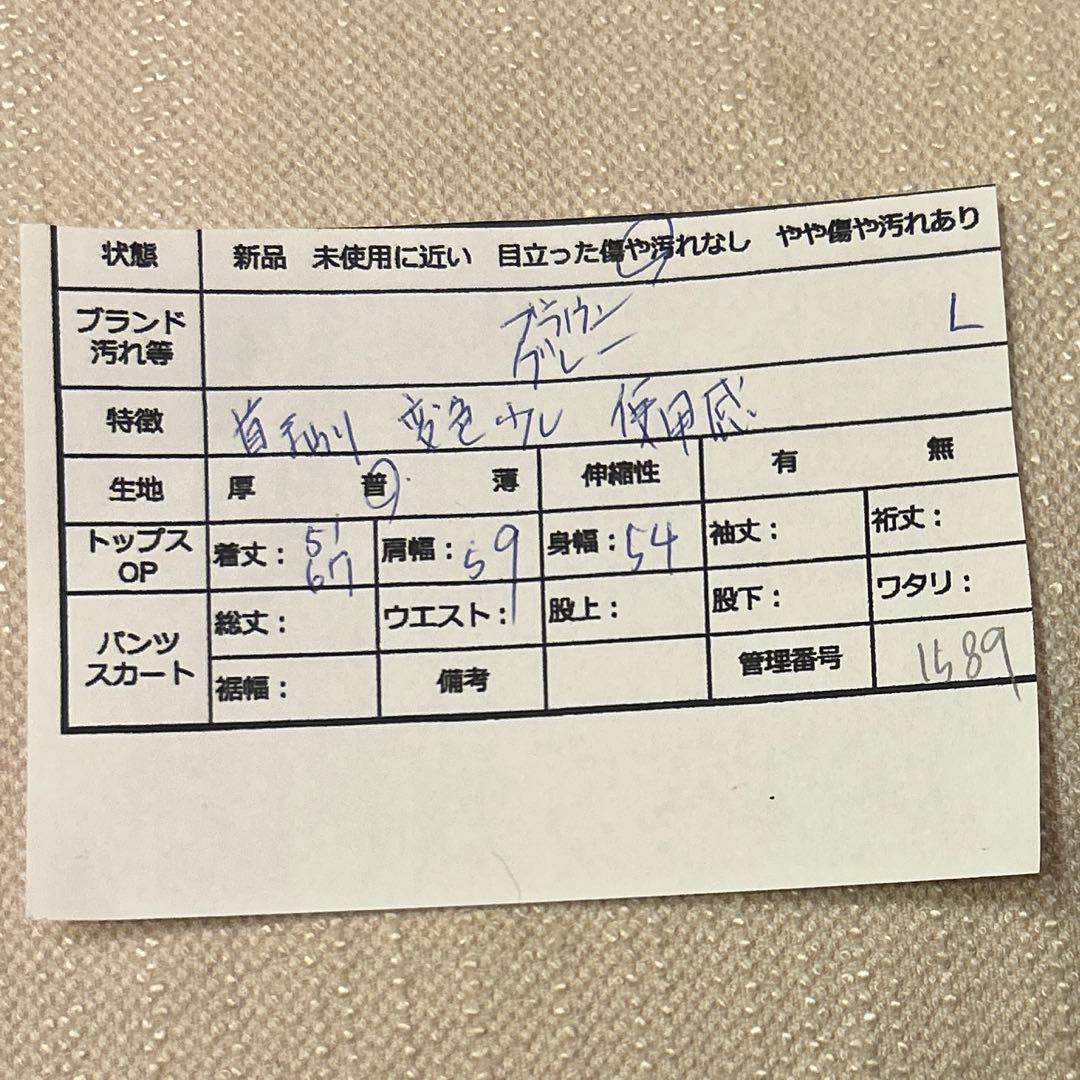 状態 新品 未使用に近い 目立った傷や汚れなし やや傷や汚れあり
ブランド汚れ等 ブラウン グレー L
特徴 変色 使用感
生地 厚 普 薄 伸縮性 有 無
トップスOP 着丈: 51 67 肩幅: 59 身幅: 54 袖丈: 裄丈:
パンツスカート 総丈: ウエスト: 股上: 股下: ワタリ:
裾幅: 備考 管理番号 1589